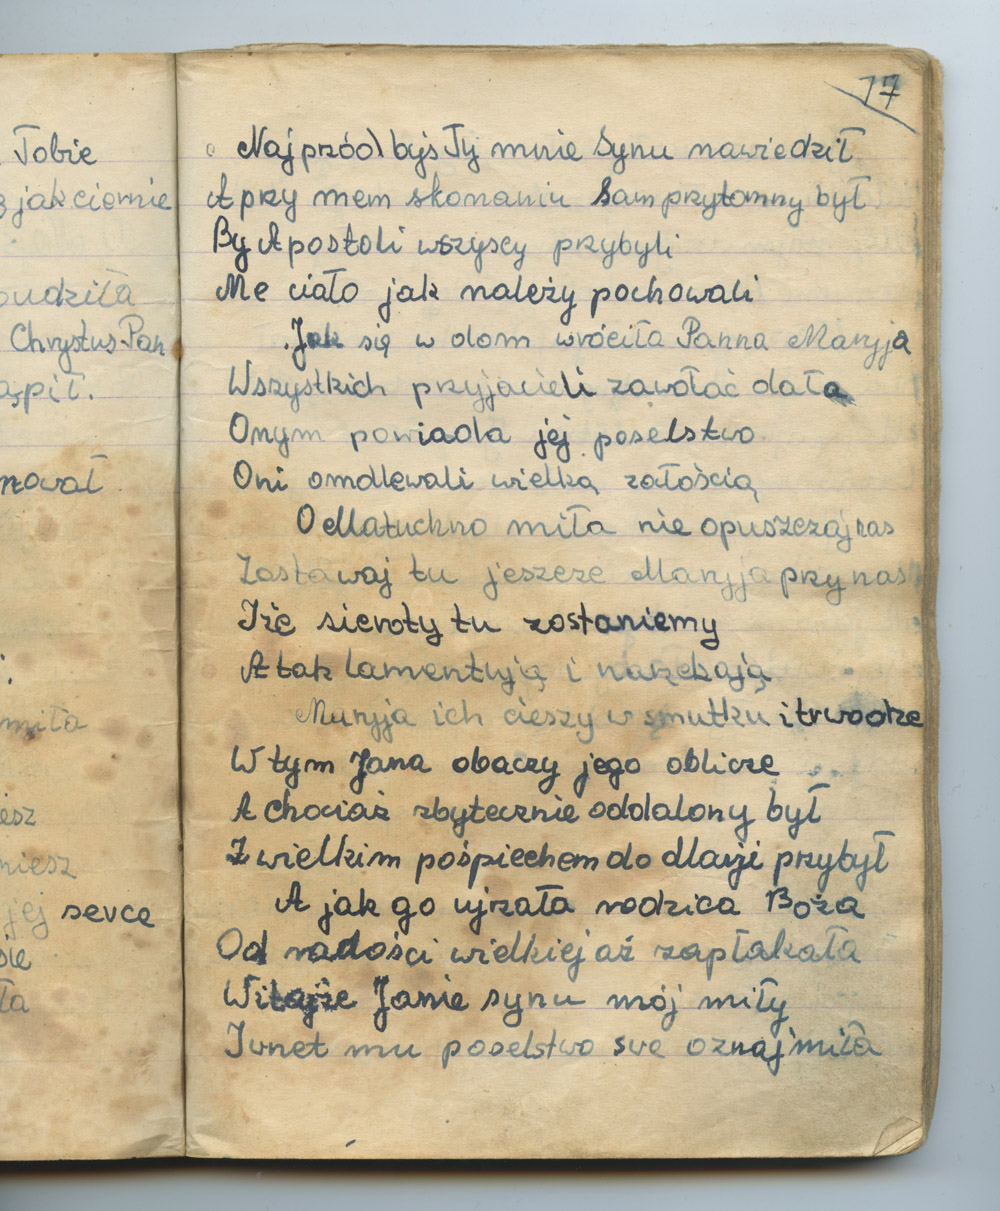 Tobie
jak ciernie
Chrystus Pan
miła
jej serce
17
Najpróд byś Ty mnie Synu nawiedził
A przy mem skonaniu Sam przytomny był
By Apostoli wszyscy przybyli
Me ciało jak należy pochowali
Jak się w dom wróciła Panna Maryja
Wszystkich przyjacieli zawołać dała
Onym powiada jej poselstwo
Oni omdlewali wielką załością
O Matuchno miła nie opuszczaj nas
Zostawaj tu jeszcze Maryja przy nas
Iże sieroty tu zostaniemy
A tak lamentują i narzekają
Maryja ich cieszy w smutku i trwodze
W tym Jana obaczy jego oblicze
A chociaż zbytecznie oddalony był
Z wielkim pośpiechem do Maryji przybył
A jak go ujrzała rodzica Boża
Od radości wielkiej aż zapłakała
Witajże Janie synu mój miły
Wnet mu poselstwo swe oznajmiła